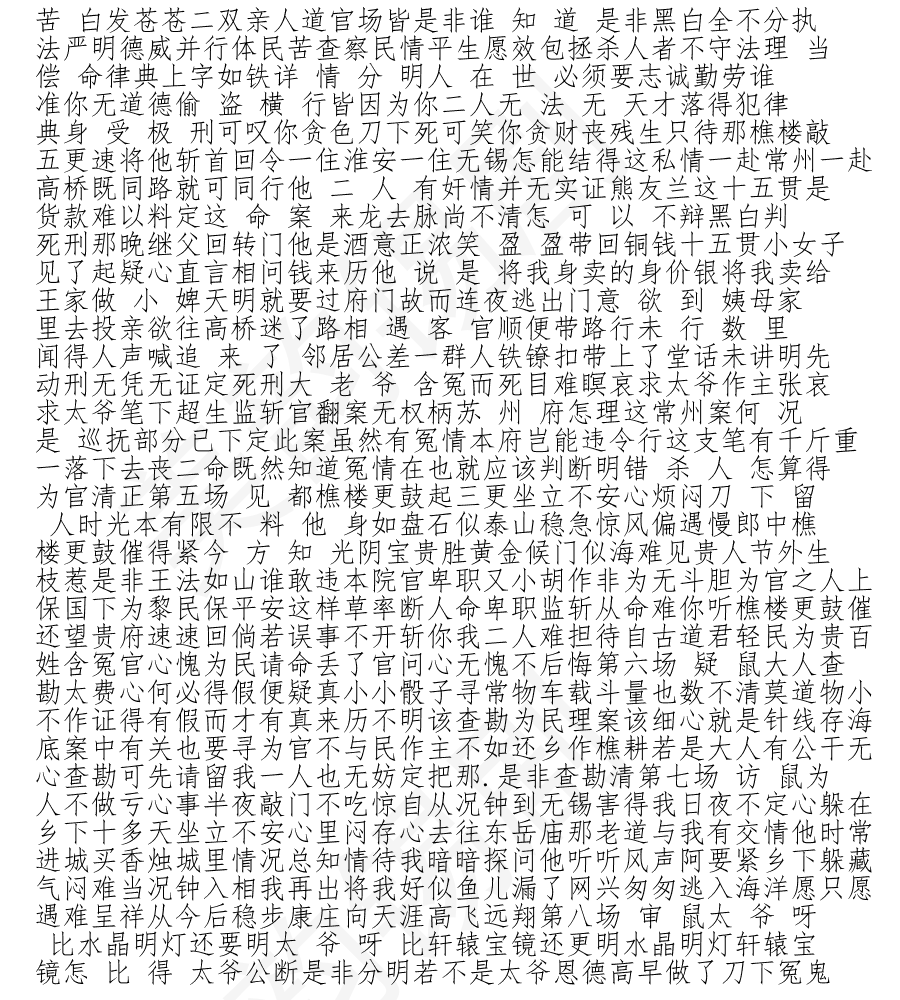 苦 白发苍苍二双亲人道官场皆是非谁 知 道 是非黑白全不分执
法严明德威并行体民苦查察民情平生愿效包拯杀人者不守法理 当
偿 命律典上字如铁详 情 分 明人 在 世 必须要志诚勤劳谁
准你无道德偷 盗 横 行皆因为你二人无 法 无 天才落得犯律
典身 受 极 刑可叹你贪色刀下死可笑你贪财丧残生只待那樵楼敲
五更速将他斩首回令一住淮安一住无锡怎能结得这私情一赴常州一赴
高桥既同路就可同行他 二 人 有奸情并无实证熊友兰这十五贯是
货款难以料定这 命 案 来龙去脉尚不清怎 可 以 不辩黑白判
死刑那晚继父回转门他是酒意正浓笑 盈 盈带回铜钱十五贯小女子
见了起疑心直言相问钱来历他 说 是 将我身卖的身价银将我卖给
王家做 小 婢天明就要过府门故而连夜逃出门意 欲 到 姨母家
里去投亲欲往高桥迷了路相 遇 客 官顺便带路行未 行 数 里
闻得人声喊追 来 了 邻居公差一群人铁镣扣带上了堂话未讲明先
动刑无凭无证定死刑大 老 爷 含冤而死目难瞑哀求太爷作主张哀
求太爷笔下超生监斩官翻案无权柄苏 州 府怎理这常州案何 况
是 巡抚部分已下定此案虽然有冤情本府岂能违令行这支笔有千斤重
一落下去丧二命既然知道冤情在也就应该判断明错 杀 人 怎算得
为官清正第五场 见 都樵楼更鼓起三更坐立不安心烦闷刀 下 留
人时光本有限不 料 他 身如盘石似泰山稳急惊风偏遇慢郎中樵
楼更鼓催得紧今 方 知 光阴宝贵胜黄金候门似海难见贵人节外生
枝惹是非王法如山谁敢违本院官卑职又小胡作非为无斗胆为官之人上
保国下为黎民保平安这样草率断人命卑职监斩从命难你听樵楼更鼓催
还望贵府速速回倘若误事不开斩你我二人难担待自古道君轻民为贵百
姓含冤官心愧为民请命丢了官问心无愧不后悔第六场 疑 鼠大人查
勘太费心何必得假便疑真小小骰子寻常物车载斗量也数不清莫道物小
不作证得有假而才有真来历不明该查勘为民理案该细心就是针线存海
底案中有关也要寻为官不与民作主不如还乡作樵耕若是大人有公干无
心查勘可先请留我一人也无妨定把那.是非查勘清第七场 访 鼠为
人不做亏心事半夜敲门不吃惊自从况钟到无锡害得我日夜不定心躲在
乡下十多天坐立不安心里闷存心去往东岳庙那老道与我有交情他时常
进城买香烛城里情况总知情待我暗暗探问他听听风声阿要紧乡下躲藏
气闷难当况钟入相我再出将我好似鱼儿漏了网兴匆匆逃入海洋愿只愿
遇难呈祥从今后稳步康庄向天涯高飞远翔第八场 审 鼠太 爷 呀
比水晶明灯还要明太 爷 呀 比轩辕宝镜还更明水晶明灯轩辕宝
镜怎 比 得 太爷公断是非分明若不是太爷恩德高早做了刀下冤鬼